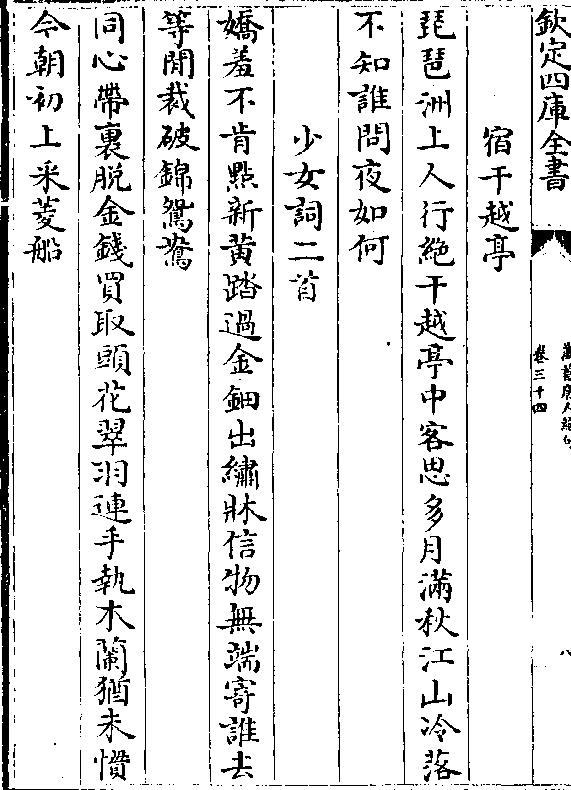 欽定四庫全書
萬首唐人絕句
卷三十四
八
宿干越亭
琵琶洲上人行絶干越亭中客思多月滿秋江山冷落
不知誰問夜如何
少女詞二首
嬌羞不肯點新黄踏過金鈿出繡牀信物無端寄誰去
等閒裁破錦鴛鴦
同心帶裏脱金錢買取頭花翠羽連手執木蘭猶未慣
今朝初上采菱船